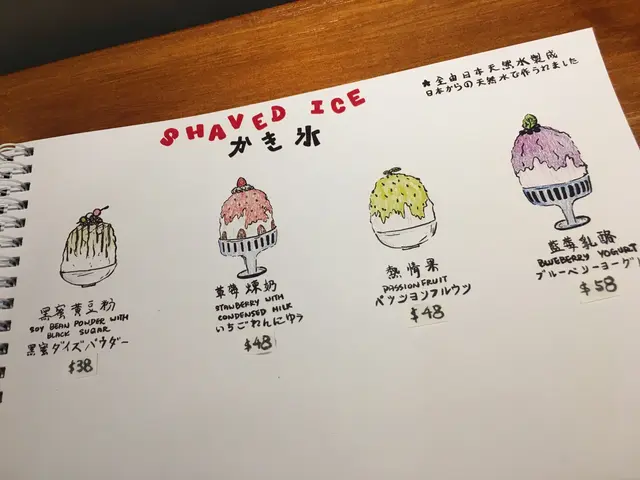 ★全由日本天然水製成
日本からの天然水で作うれました
SHAVED ICE
かき氷
黑蜜黃豆粉
SOY BEAN POWDER WITH
BLACK SUGAR
黒蜜ダイズパウダー
$38
草莓煉奶
STAWBERRY WITH
CONDENSED MILK
いちごれんにゆう
$48
熱情果
PASSIONFRUIT
パッションフルウツ
$48
藍莓乳酪
BLUEBERRY YOGURT
ブルーベリーヨーグル
$58